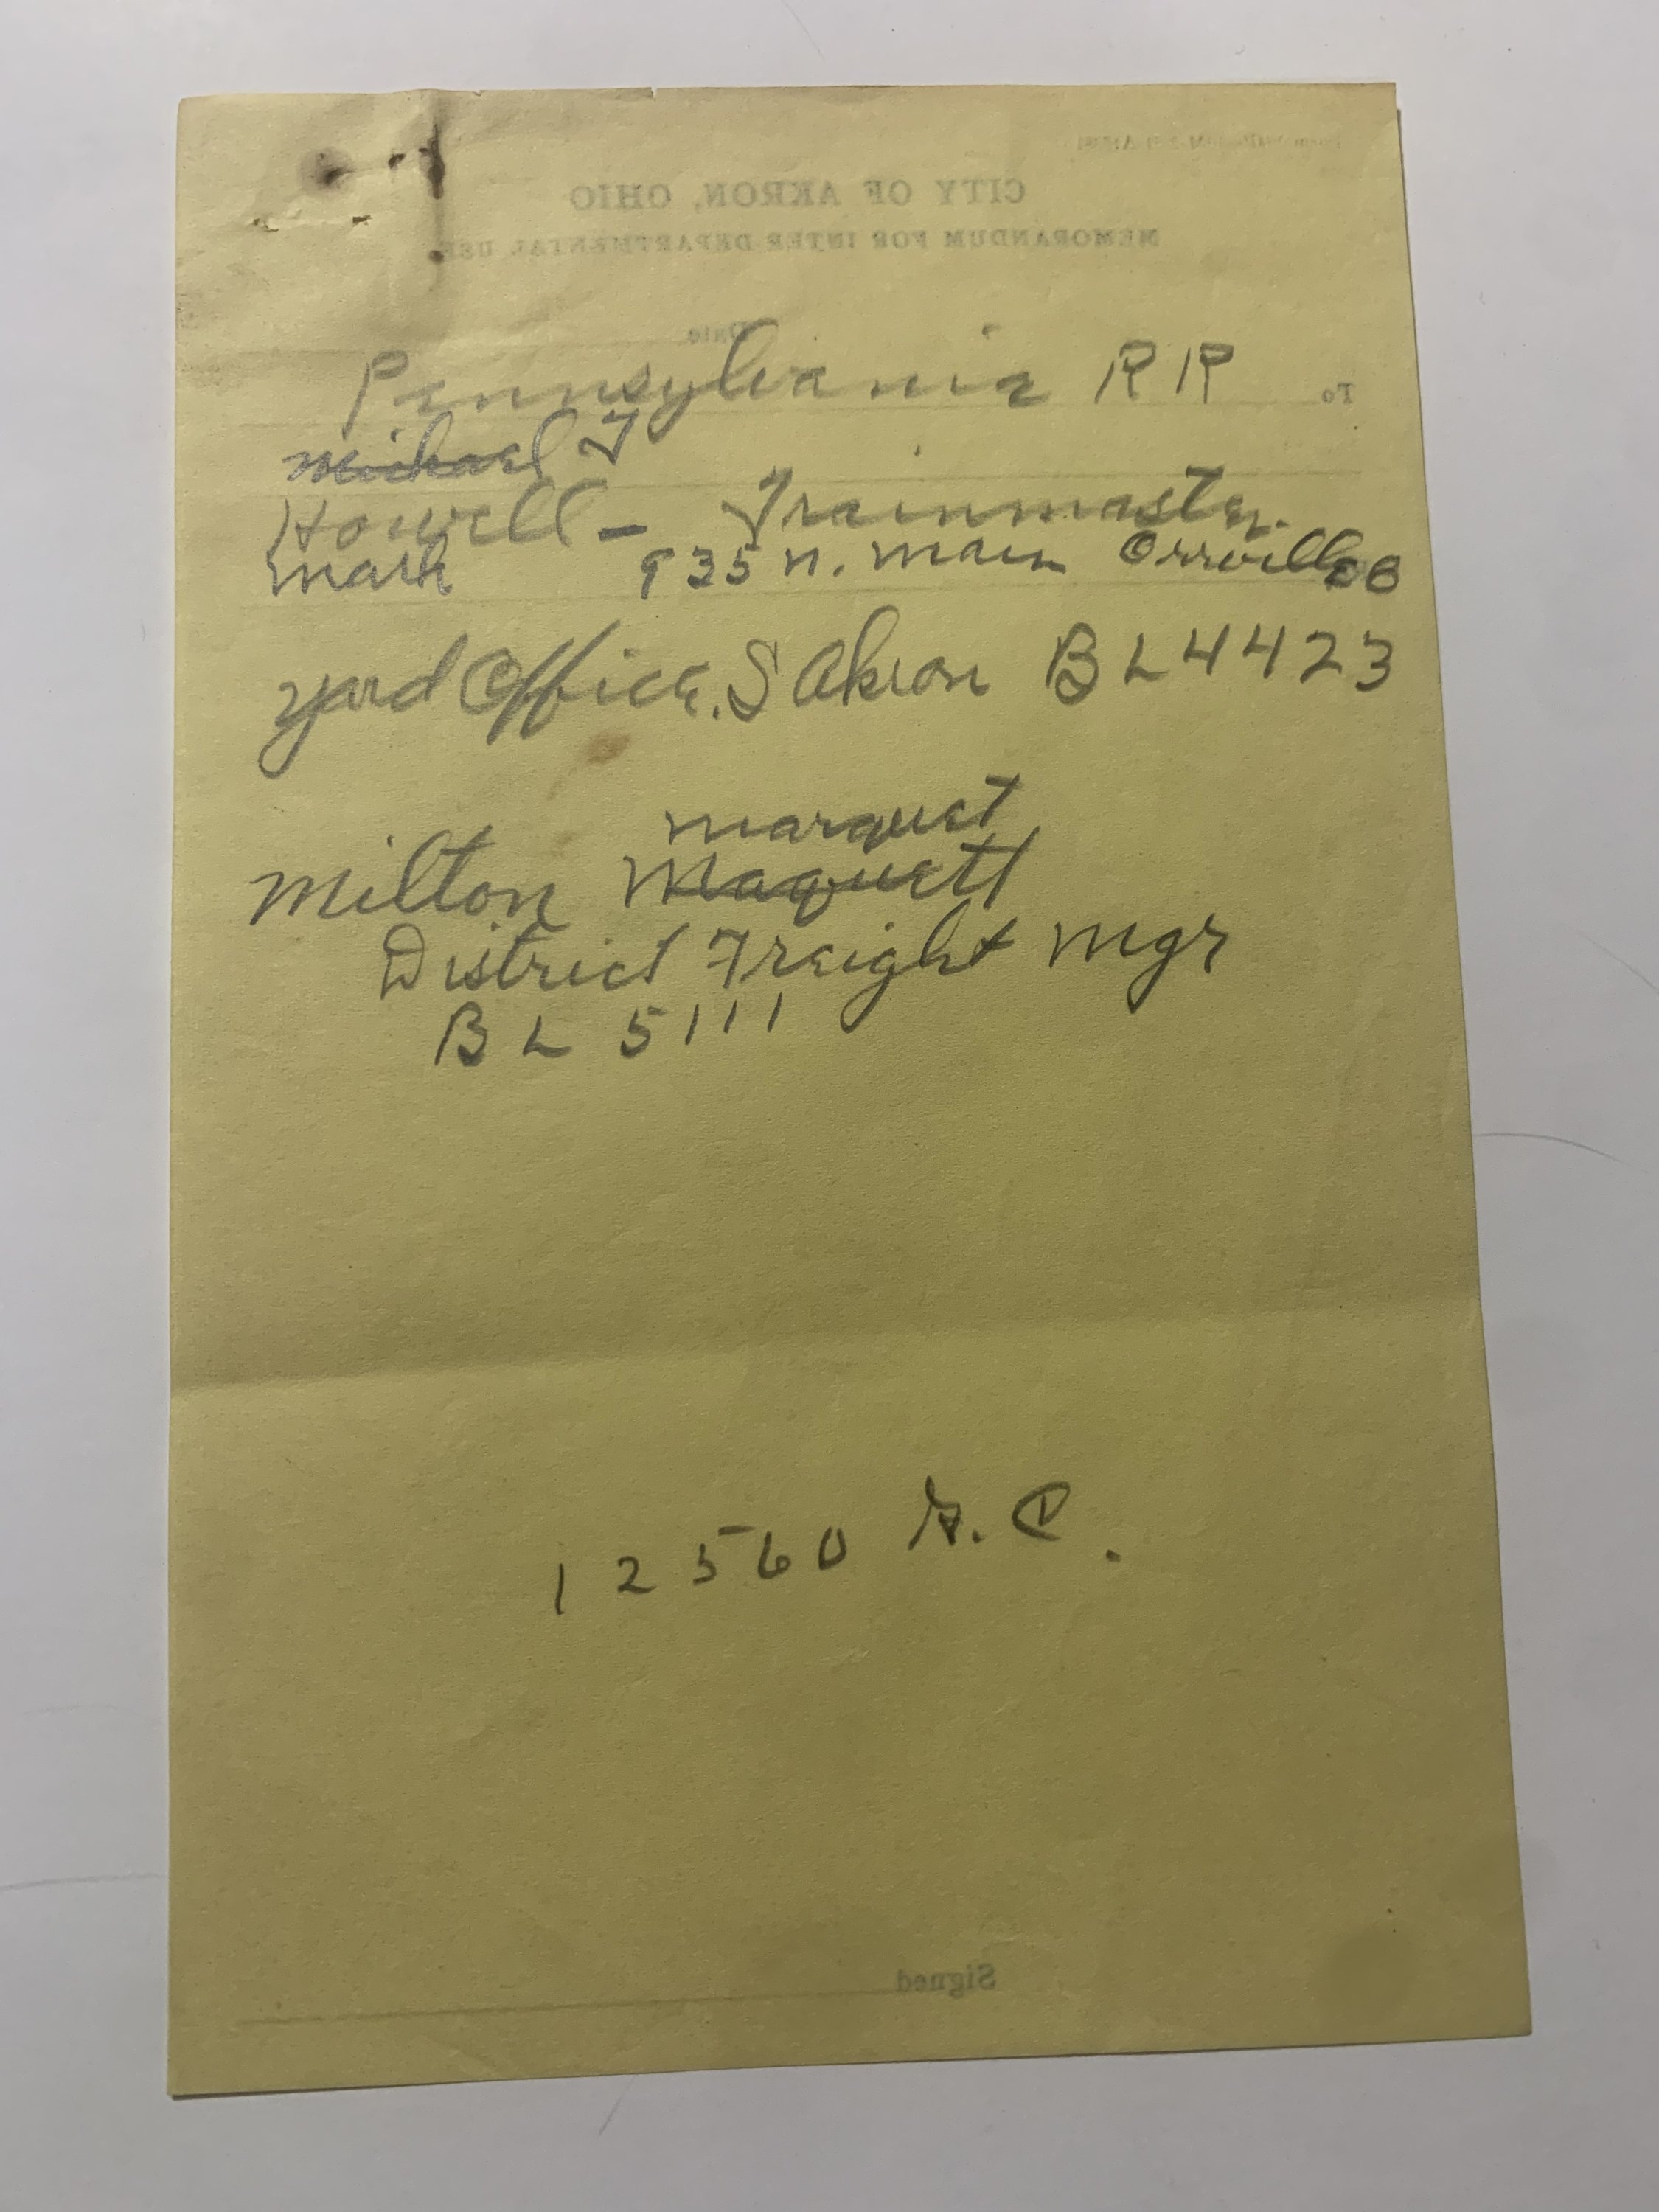 CITY OF AKRON, OHIO
MEMORANDUM FOR INTER DEPARTMENTAL USE
Date
To
Pennsylvania RR
Michael J
Howell - Trainmaster
Mark 935 N. Main Orrville
Yard Office. S Akron BL 4423
Marquet
Milton Maquett
District Freight Mgr
BL 5111
12560
Signed